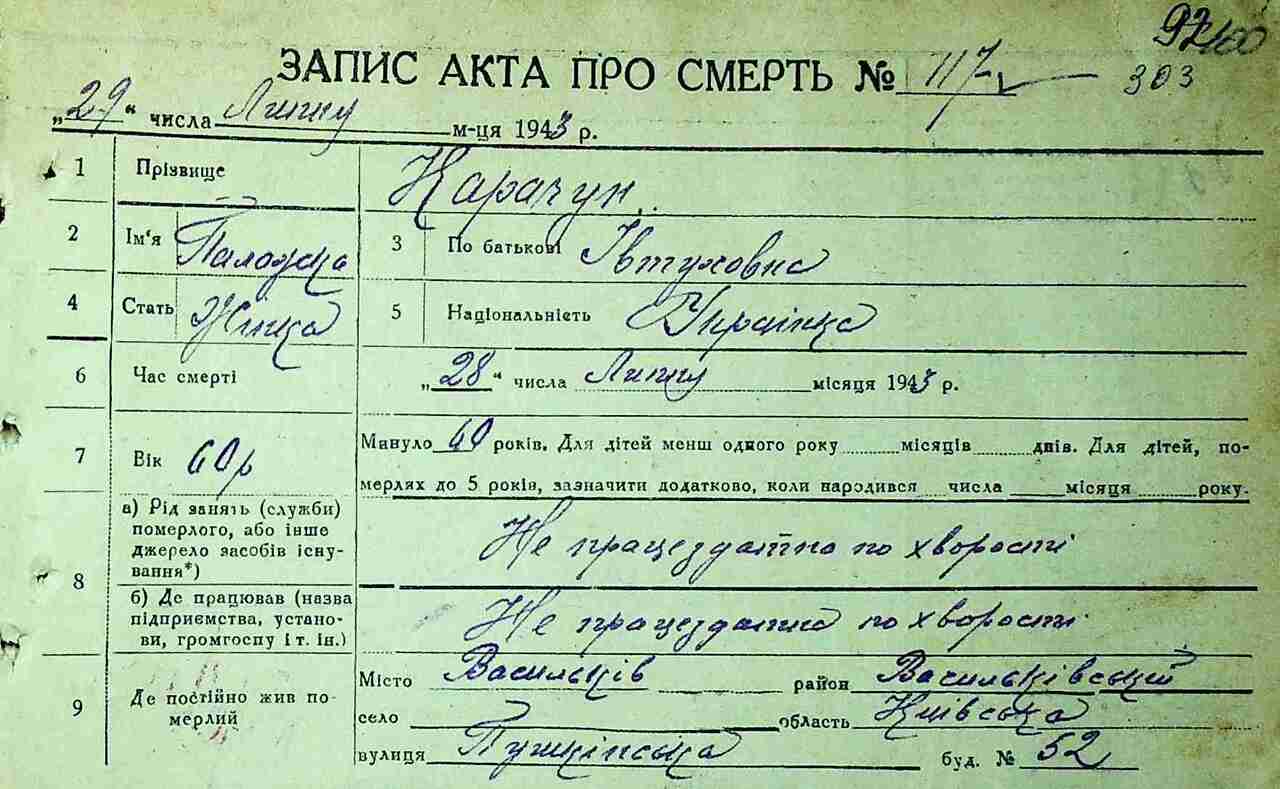 92
ЗАПИС АКТА ПРО СМЕРТЬ № 117
303
„29“ числа Липню м-ця 1943 р.
1 Прізвище Карачун
2 Ім'я Палажка 3 По батькові Івтуховна
4 Стать Жінка 5 Національність Українка
6 Час смерті „28“ числа Липню місяця 1943 р.
7 Вік 60 р Минуло 60 років. Для дітей менш одного року місяців днів. Для дітей, по-
мерлях до 5 років, зазначити додатково, коли народився числа місяця року.
8 а) Рід занять (служби)
померлого, або інше
джерело засобів існу-
вання*) Не працездатна по хворості
б) Де працював (назва
підприємства, устано-
ви, громгоспу і т. ін.) Не працездатна по хворості
9 Де постійно жив по-
мерлий
Місто Васильків район Васильківський
село область Київська
вулиця Пушкінська буд. № 52